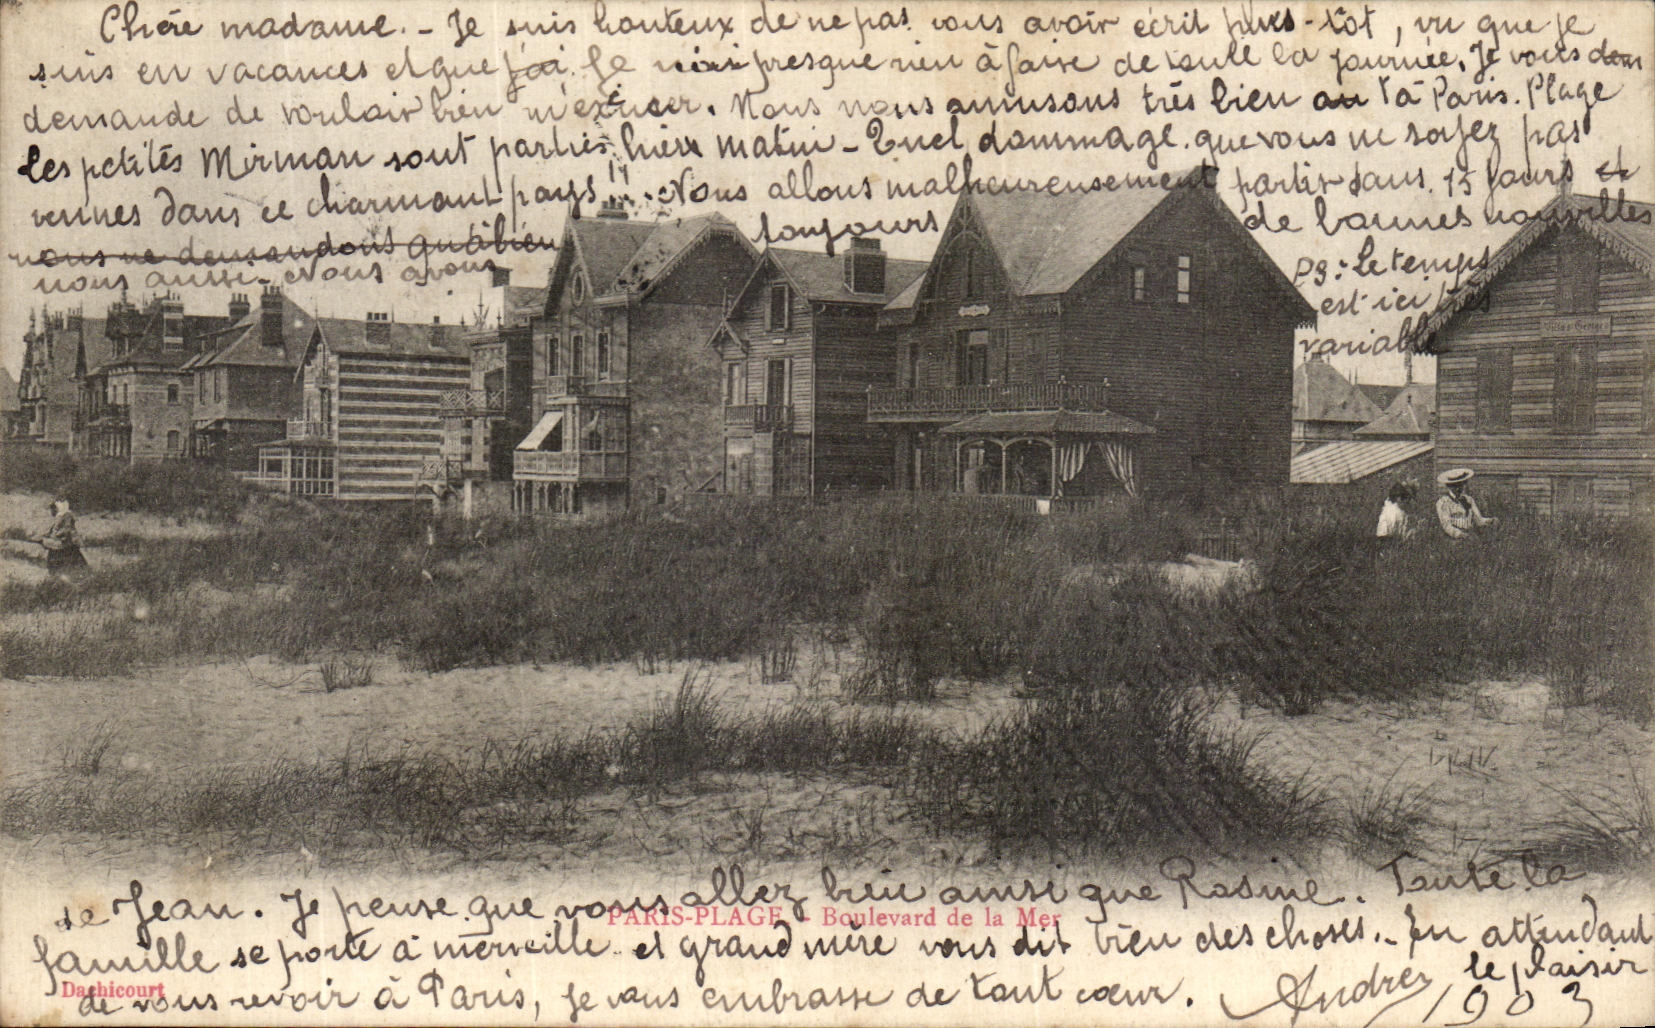 Chère madame. - Je suis honteux de ne pas vous avoir écrit plus-tôt, vu que je
suis en vacances et que j'ai Je n'ai presque rien à faire de toute la journée. Je vous dem
demande de vouloir bien m'excuser. Nous nous amusons très bien au à Paris. Plage
Les petites Mirman sont parties hier matin - Quel dommage que vous ne soyez pas
venues dans ce charmant pays!!... Nous allons malheureusement partir dans 15 jours et
nous ne demandons qu'à bien toujours de bonnes nouvelles
nous aussi - Nous avons
PS: le temps
est ici très
variable
Villa George
de Jean. Je pense que vous allez bien ainsi que Rosine. Toute la
PARIS-PLAGE - Boulevard de la Mer
famille se porte à merveille et grand mère vous dit bien des choses. - En attendant
le plaisir
Dachicourt
de vous revoir à Paris, je vous embrasse de tout cœur. Andrée 1903